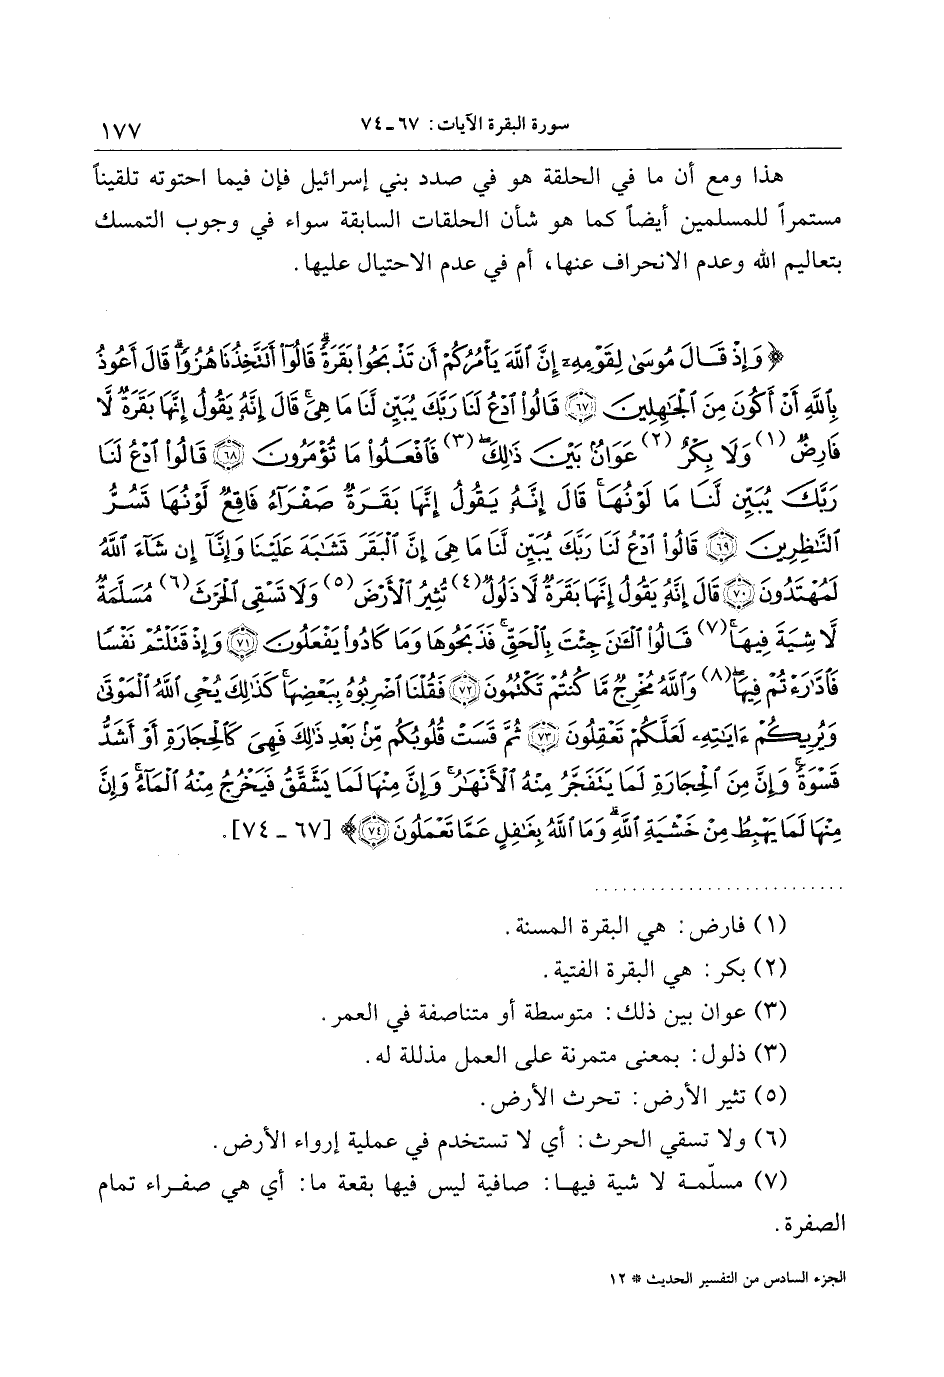 سورة البقرة الآيات: ٦٧-٧٤ ١٧٧
هذا ومع أن ما في الحلقة هو في صدد بني إسرائيل فإن فيما احتوته تلقيناً
مستمراً للمسلمين أيضاً كما هو شأن الحلقات السابقة سواء في وجوب التمسك
بتعاليم الله وعدم الانحراف عنها، أم في عدم الاحتيال عليها.
﴿وَإِذْ قَالَ مُوسَىٰ لِقَوْمِهِۦٓ إِنَّ ٱللَّهَ يَأْمُرُكُمْ أَن تَذْبَحُوا۟ بَقَرَةً ۖ قَالُوٓا۟ أَتَتَّخِذُنَا هُزُوًا ۖ قَالَ أَعُوذُ
بِٱللَّهِ أَنْ أَكُونَ مِنَ ٱلْجَٰهِلِينَ ٦٧ قَالُوا۟ ٱدْعُ لَنَا رَبَّكَ يُبَيِّن لَّنَا مَا هِىَ ۚ قَالَ إِنَّهُۥ يَقُولُ إِنَّهَا بَقَرَةٌ لَّا
فَارِضٌ (١) وَلَا بِكْرٌ (٢) عَوَانٌۢ بَيْنَ ذَٰلِكَ ۖ (٣) فَٱفْعَلُوا۟ مَا تُؤْمَرُونَ ٦٨ قَالُوا۟ ٱدْعُ لَنَا
رَبَّكَ يُبَيِّن لَّنَا مَا لَوْنُهَا ۚ قَالَ إِنَّهُۥ يَقُولُ إِنَّهَا بَقَرَةٌ صَفْرَآءُ فَاقِعٌ لَّوْنُهَا تَسُرُّ
ٱلنَّٰظِرِينَ ٦٩ قَالُوا۟ ٱدْعُ لَنَا رَبَّكَ يُبَيِّن لَّنَا مَا هِىَ إِنَّ ٱلْبَقَرَ تَشَٰبَهَ عَلَيْنَا وَإِنَّآ إِن شَآءَ ٱللَّهُ
لَمُهْتَدُونَ ٧٠ قَالَ إِنَّهُۥ يَقُولُ إِنَّهَا بَقَرَةٌ لَّا ذَلُولٌ (٤) تُثِيرُ ٱلْأَرْضَ (٥) وَلَا تَسْقِى ٱلْحَرْثَ (٦) مُسَلَّمَةٌ
لَّا شِيَةَ فِيهَا ۚ (٧) قَالُوا۟ ٱلْـَٰٔنَ جِئْتَ بِٱلْحَقِّ ۚ فَذَبَحُوهَا وَمَا كَادُوا۟ يَفْعَلُونَ ٧١ وَإِذْ قَتَلْتُمْ نَفْسًا
فَٱدَّٰرَْٰٔتُمْ فِيهَا ۖ (٨) وَٱللَّهُ مُخْرِجٌ مَّا كُنتُمْ تَكْتُمُونَ ٧٢ فَقُلْنَا ٱضْرِبُوهُ بِبَعْضِهَا ۚ كَذَٰلِكَ يُحْىِ ٱللَّهُ ٱلْمَوْتَىٰ
وَيُرِيكُمْ ءَايَٰتِهِۦ لَعَلَّكُمْ تَعْقِلُونَ ٧٣ ثُمَّ قَسَتْ قُلُوبُكُم مِّنۢ بَعْدِ ذَٰلِكَ فَهِىَ كَٱلْحِجَارَةِ أَوْ أَشَدُّ
قَسْوَةً ۚ وَإِنَّ مِنَ ٱلْحِجَارَةِ لَمَا يَتَفَجَّرُ مِنْهُ ٱلْأَنْهَٰرُ ۚ وَإِنَّ مِنْهَا لَمَا يَشَّقَّقُ فَيَخْرُجُ مِنْهُ ٱلْمَآءُ ۚ وَإِنَّ
مِنْهَا لَمَا يَهْبِطُ مِنْ خَشْيَةِ ٱللَّهِ ۗ وَمَا ٱللَّهُ بِغَٰفِلٍ عَمَّا تَعْمَلُونَ ٧٤﴾ [٦٧ - ٧٤].
(١) فارض: هي البقرة المسنة.
(٢) بكر: هي البقرة الفتية.
(٣) عوان بين ذلك: متوسطة أو متناصفة في العمر.
(٣) ذلول: بمعنى متمرنة على العمل مذللة له.
(٥) تثير الأرض: تحرث الأرض.
(٦) ولا تسقي الحرث: أي لا تستخدم في عملية إرواء الأرض.
(٧) مسلّمة لا شية فيها: صافية ليس فيها بقعة ما: أي هي صفراء تمام
الصفرة.
الجزء السادس من التفسير الحديث * ١٢